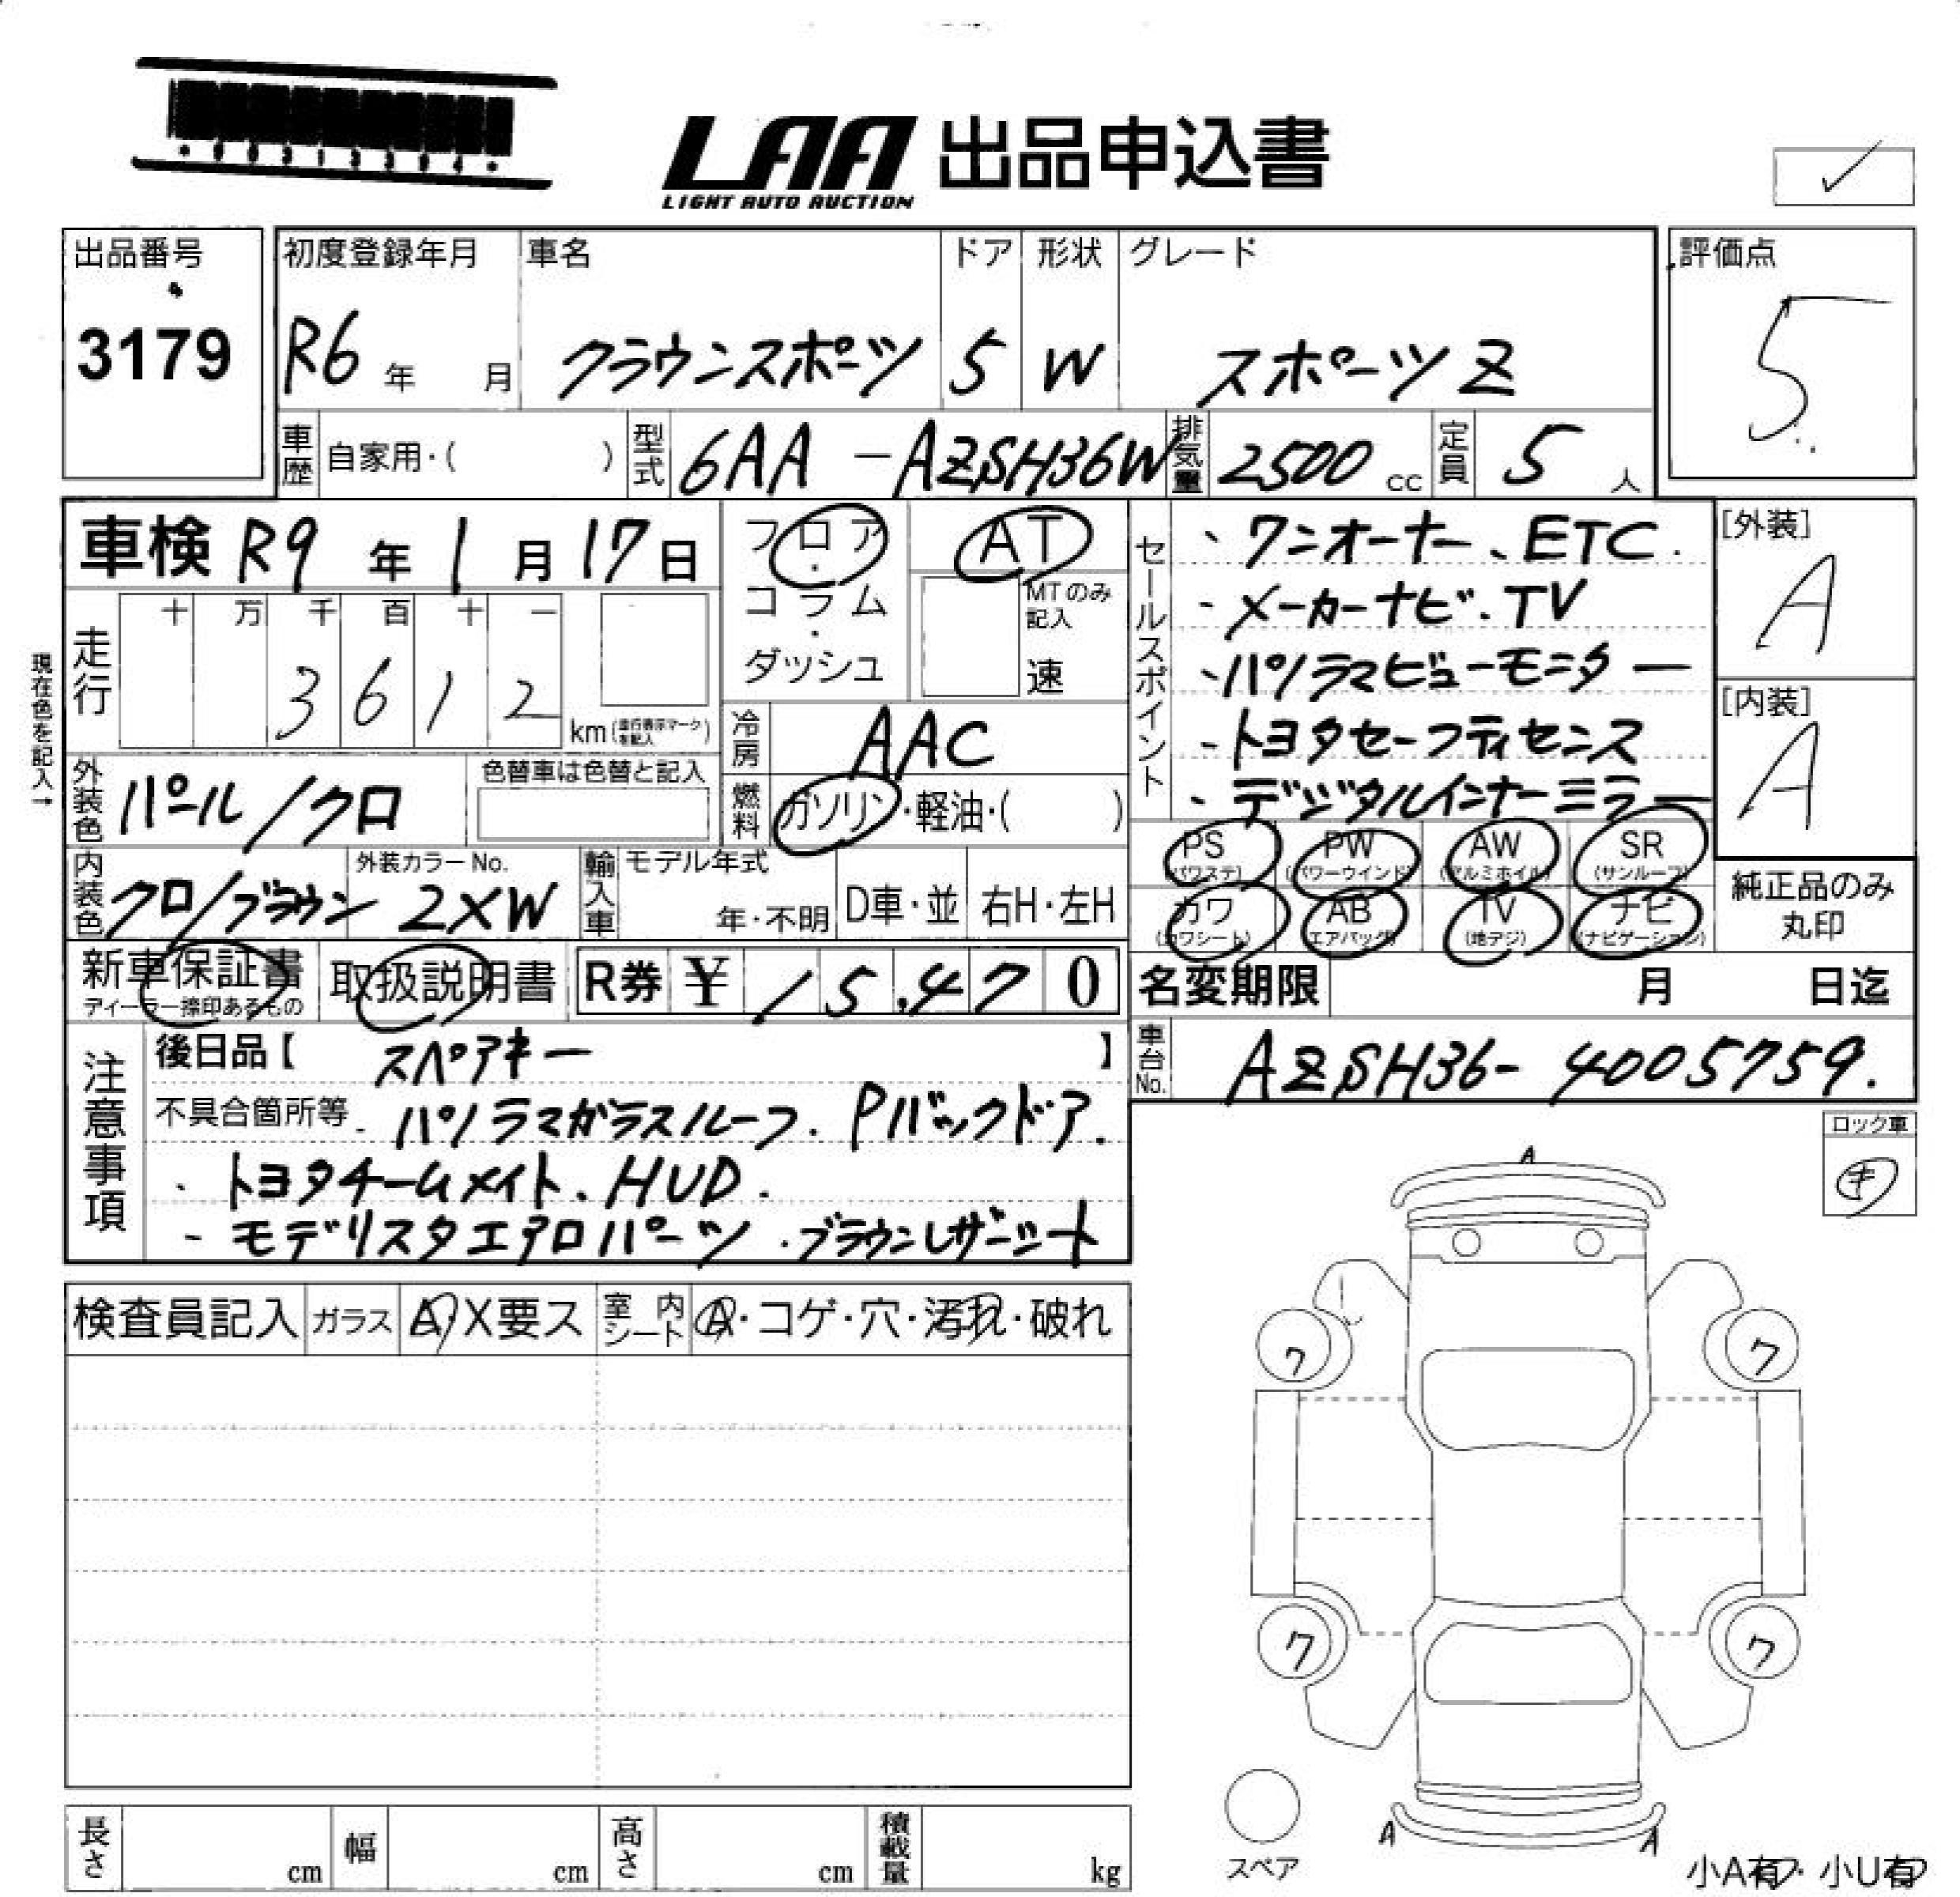 LAA 出品申込書
LIGHT AUTO AUCTION
出品番号
3179
初度登録年月
R6 年 月
車名
クラウンスポーツ
ドア
5
形状
W
グレード
スポーツ Z
評価点
5
車歴 自家用・( )
型式 6AA-AZSH36W
排気量 2500 cc
定員 5 人
車検 R9 年 1 月 17 日
フロア・コラム・ダッシュ
AT
MTのみ記入
速
現在色を記入→
走行 十 万 千 百 十 一
3612
km(走行表示マークを記入)
冷房 AAC
外装色 パール/クロ
色替車は色替と記入
燃料 ガソリン・軽油・( )
内装色 クロ/ブラウン
外装カラーNo.
2XW
輸入車 モデル年式
年・不明
D車・並
右H・左H
セールスポイント
、ワンオーナー、ETC.
・メーカーナビ・TV
・パノラマビューモニター
・トヨタセーフティセンス
・デジタルインナーミラー
PS (パワステ)
PW (パワーウインド)
AW (アルミホイル)
SR (サンルーフ)
カワ (カワシート)
AB (エアバッグ)
TV (地デジ)
ナビ (ナビゲーション)
[外装]
A
[内装]
A
純正品のみ
丸印
新車保証書
ディーラー捺印あるもの
取扱説明書
R券 ¥ 15,470
名変期限 月 日迄
車台No. AZSH36-4005759.
注意事項
後日品【 スペアキー 】
不具合箇所等 . パノラマガラスルーフ. Pバックドア.
・トヨタチームメイト、HUD.
- モデリスタエアロパーツ ・ブラウンレザーシート
ロック車
キ
検査員記入
ガラス A X要ス
室内シート A・コゲ・穴・汚れ・破れ
A
ワ
ワ
ワ
ワ
A
A
スペア
長さ cm
幅 cm
高さ cm
積載量 kg
小A有・小U有